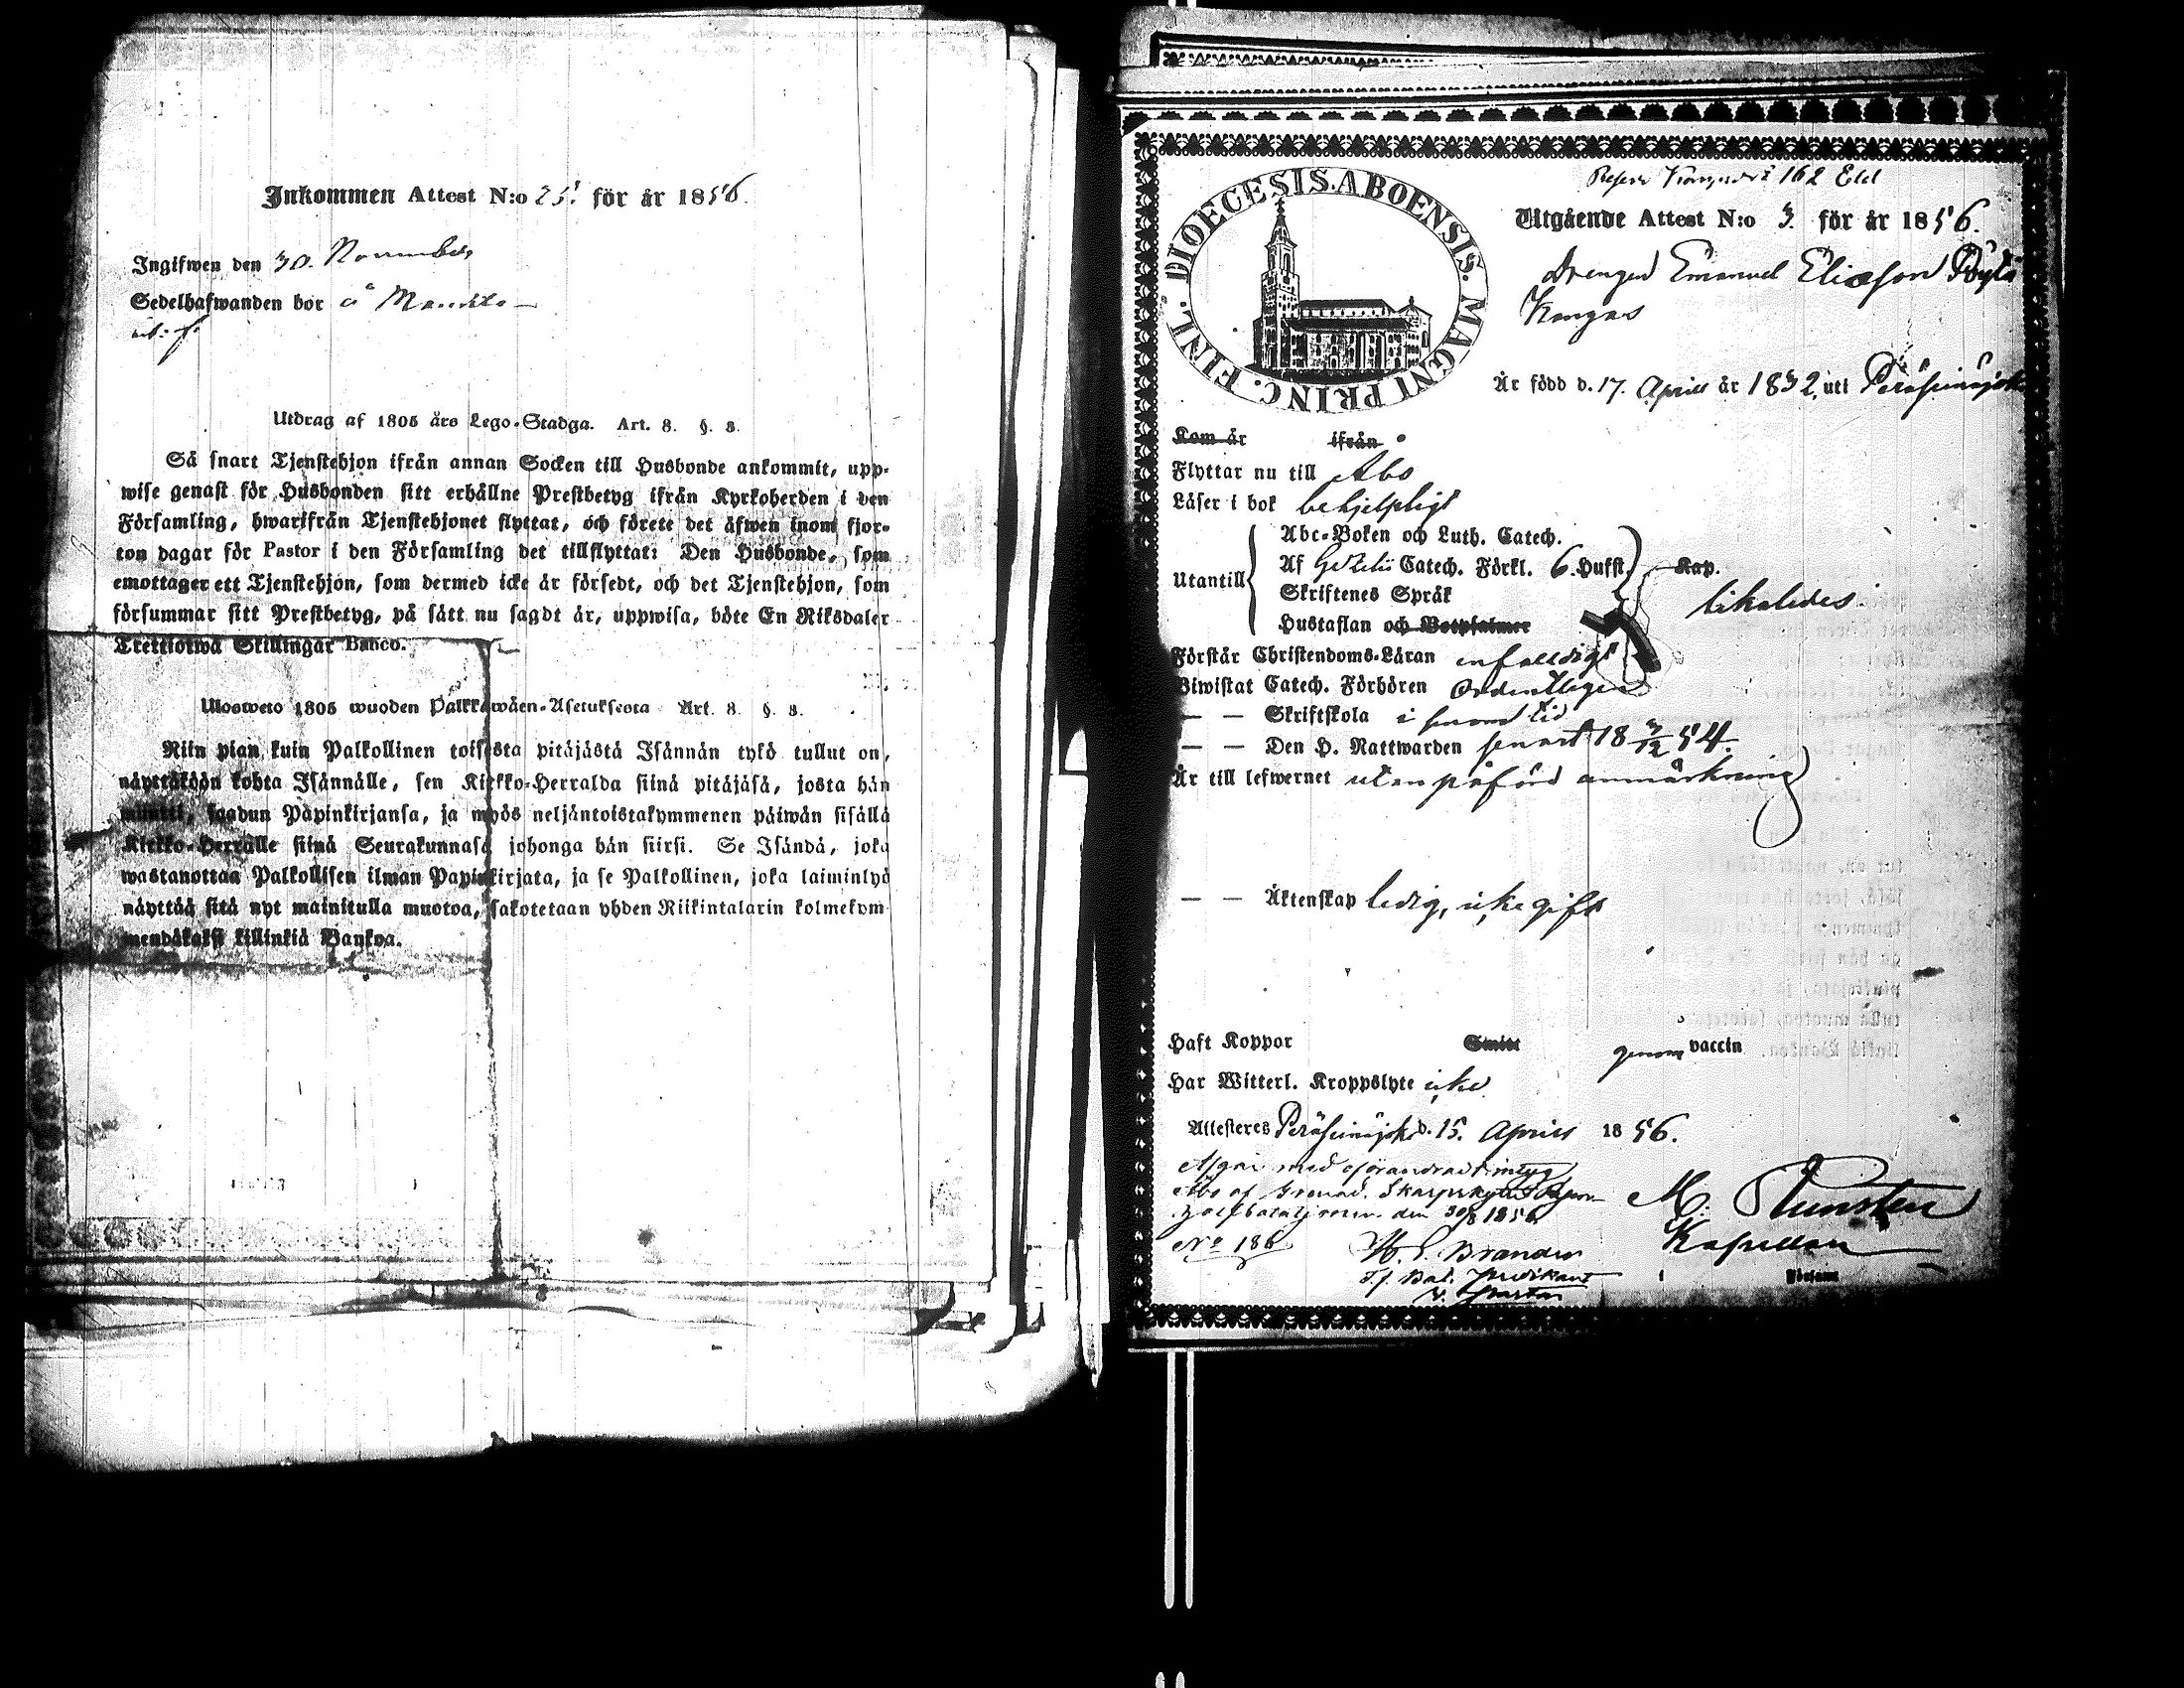 Inkommen Attest N:o 25. för år 1856.
Ingifwen den 30. November
Sedelhafwanden bor å
Utdrag af 1805 års Lego-Stadga. Art. 8. §. 3.
Så snart Tjenstehjon ifrån annan Socken till Husbonde ankommit, upp-
wise genast för Husbonden sitt erhållne Prestbetyg ifrån Kyrkoherden i den
Församling, hwarifrån Tjenstehjonet flyttat, och förete det äfwen inom fjor-
ton dagar för Pastor i den Församling det tillflyttat: Den Husbonde, som
emottager ett Tjenstehjon, som dermed icke är försedt, och det Tjenstehjon, som
försummar sitt Prestbetyg, på sätt nu sagdt är, uppwisa, böte En Riksdaler
Trettiotwå Skillingar Banco.
Ulosweto 1805 wuoden Palkkawäen-Asetuksesta Art. 8. §. 3.
Niin pian kuin Palkollinen toisesta pitäjästä Isännän tykö tullut on,
näyttäköön kohta Isännälle, sen Kirkko-Herralda siinä pitäjäsä, josta hän
muutti, saadun Papinkirjansa, ja myös neljäntoistakymmenen päiwän sisällä
Kirkko-Herralle siinä Seurakunnasa johonga hän siirsi. Se Isändä, joka
wastanottaa Palkollisen ilman Papinkirjata, ja se Palkollinen, joka laiminlyö
näyttää sitä nyt mainitulla muotoa, sakotetaan yhden Riikintalarin kolmekym-
mendäkaksi killinkiä Bankoa.
162
DIOECESIS. ABOENSIS. MAGNI PRINC. FINL.
Utgående Attest N:o 3. för år 1856.
Drengen Emanuel Eliasson
Kangas
Är född d. 17. April år 1832 uti Peräseinäjoki
Kom år ifrån
Flyttar nu till Åbo
Läser i bok behjelpligt
Utantill
Abc-Boken och Luth. Catech.
Af Gezelii Catech. Förkl. 6. Hufst. Kap.
Skriftenes Språk
Hustaflan och Botpsalmer
likaledes.
Förstår Christendoms-Läran enfaldigt
Biwistat Catech. Förhören Ordentligen
— — Skriftskola i sinom tid
— — Den H. Nattwarden senast 18 3/12 54.
Är till lefwernet utan påförd anmärkning
— — Äktenskap ledig, icke gift
Haft Koppor Smitt genom vaccin
Har Witterl. Kroppslyte icke
Attesteres Peräseinäjoki d. 15. April 1856.
Afgår med oförändradt intyg
Åbo af Grenad. Skarpskytte
bataljonen den 30/8 1856
N:o 186
Brander
Tf. Bat. Predikant
v. Pastor
Kapellan